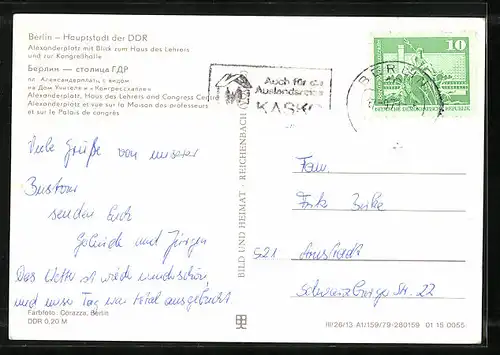 Berlin – Hauptstadt der DDR
Alexanderplatz mit Blick zum Haus des Lehrers
und zur Kongreßhalle
Берлин — столица ГДР
пл. Александерплатц с видом
на Дом Учителя и «Конгрессхалле»
Alexanderplatz, Haus des Lehrers and Congress Centre
Alexanderplatz et vue sur la Maison des professeurs
et sur le Palais de congrès
Auch für die
Auslandsreise
KASKO
BERLIN
10
DEUTSCHE DEMOKRATISCHE REPUBLIK
Viele Grüße von unserer
Bustour
senden Euch
Gelinde und Jürgen
Das Wetter ist wieder wunderschön,
und unser Tag war total ausgebucht.
BILD UND HEIMAT · REICHENBACH
Fam.
521 Arnstadt
Str. 22
Farbfoto: Corazza, Berlin
DDR 0,20 M
III/26/13 A1/159/79-280159 01 15 0055